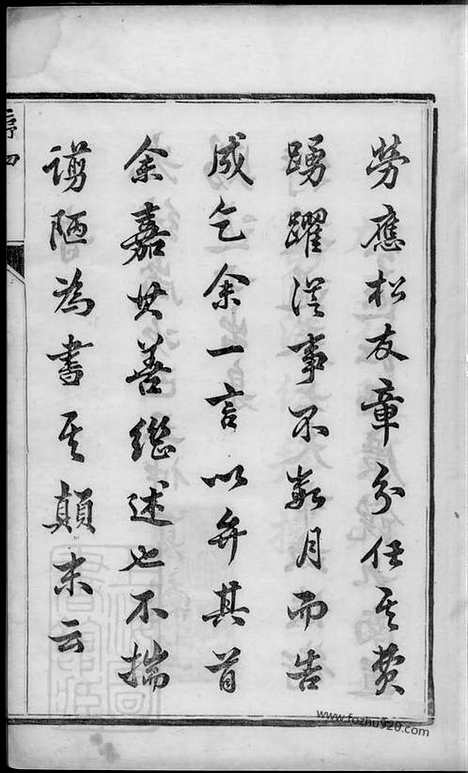 勞應松友章分任其費
踴躍從事不數月而告
成乞余一言以弁其首
余嘉其善繼述也不揣
謭陋為書其顛末云
序四
www.fozhu920.com